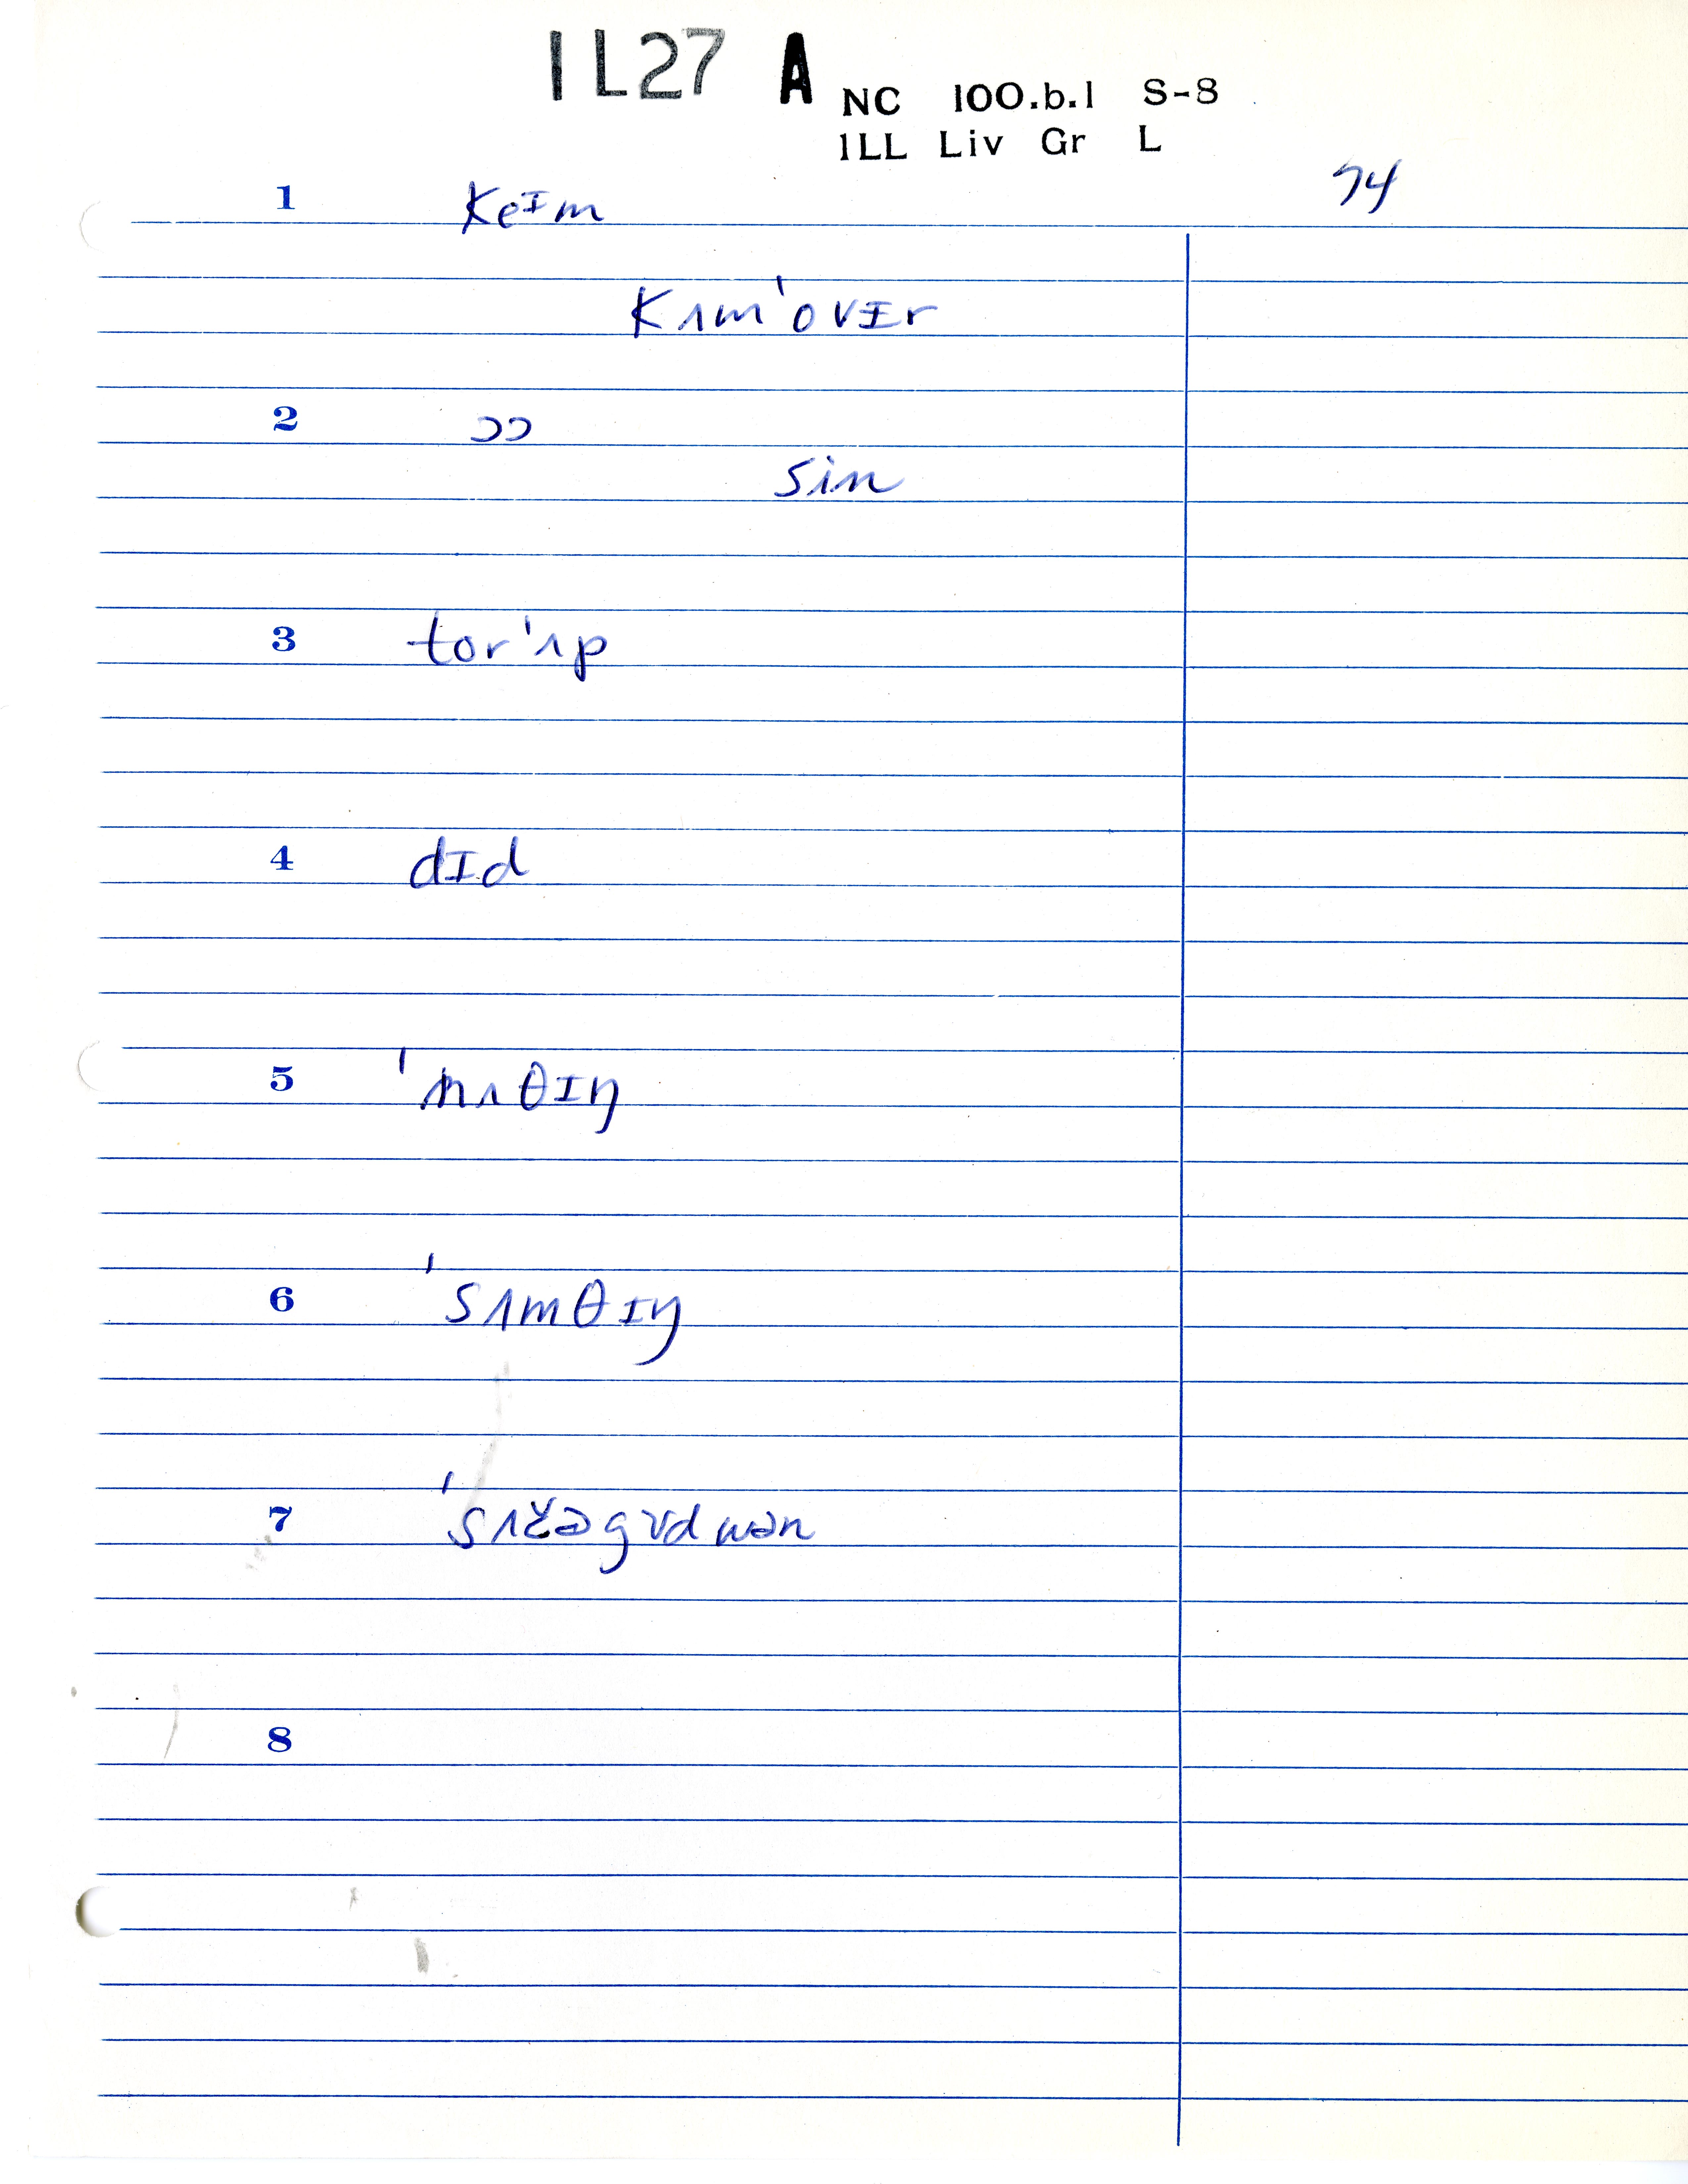 1L27 A NC 100.b.1 S-8
1LL Liv Gr L
74
1 keɪm
kʌm'ovɪr
2 ɔɔ
sin
3 tor'ʌp
4 dɪd
5 'nʌθɪŋ
6 'sʌmθɪŋ
7 'sʌčəgʊdwən
8